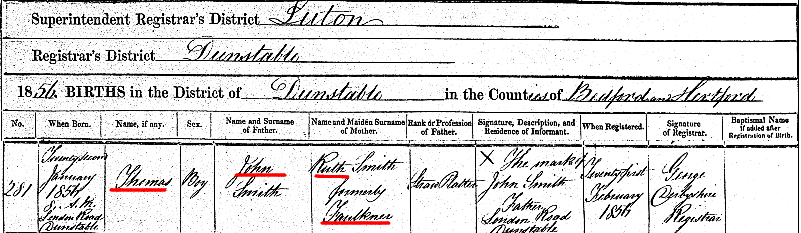 Superintendent Registrar's District Luton
Registrar's District Dunstable
1856. BIRTHS in the District of Dunstable in the Counties of Bedford and Hertford
No. When Born. Name, if any. Sex. Name and Surname of Father. Name and Maiden Surname of Mother. Rank or Profession of Father. Signature, Description, and Residence of Informant. When Registered. Signature of Registrar. Baptismal Name if added after Registration of Birth.
281
Twenty second
January
1856
A.M.
London Road
Dunstable
Thomas
Boy
John
Smith
Ruth Smith
formerly
Faulkner
Straw Platter
X The mark of
John Smith
Father
London Road
Dunstable
Twenty first
February
1856
George
Derbyshire
Registrar